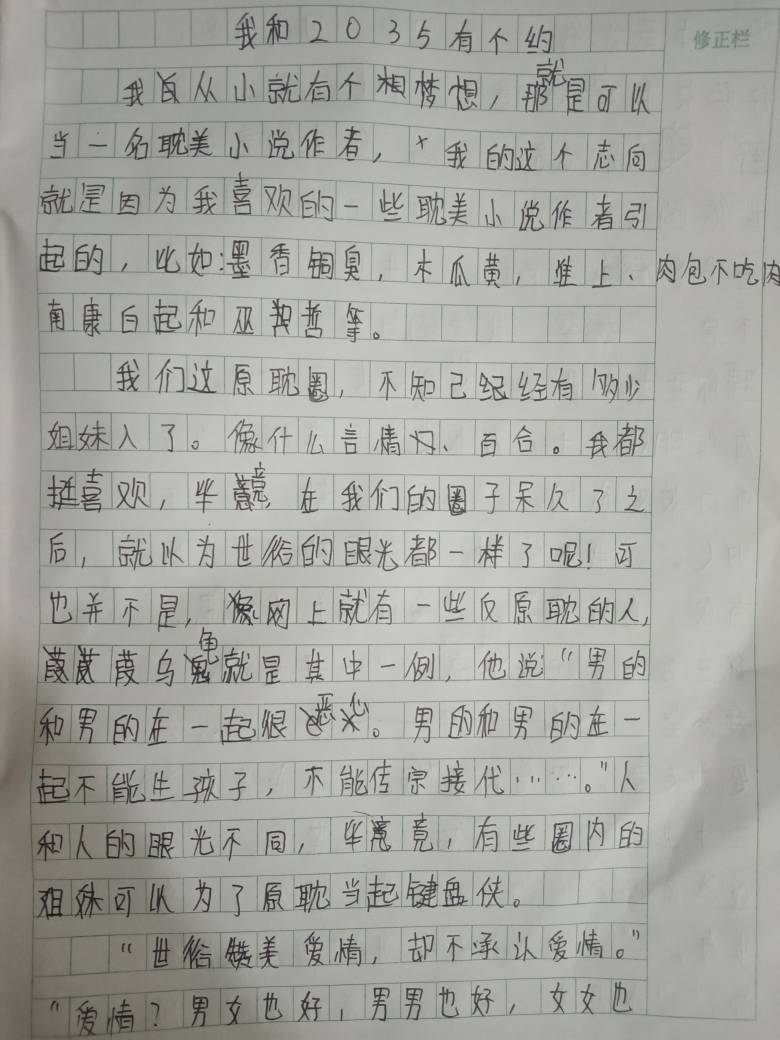 我和2035有个约
修正栏
我从小就有个梦想，那就是可以
当一名耽美小说作者，我的这个志向
就是因为我喜欢的一些耽美小说作者引
起的，比如：墨香铜臭，木瓜黄，淮上、肉包不吃肉
南康白起和巫哲等。
我们这原耽圈，不知已经有多少
姐妹入了。像什么言情、百合。我都
挺喜欢，毕竟，在我们的圈子呆久了之
后，就以为世俗的眼光都一样了呢！可
也并不是，像网上就有一些反原耽的人，
葭葭乌龟就是其中一例，他说“男的
和男的在一起很恶心。男的和男的在一
起不能生孩子，不能传宗接代……。”人
和人的眼光不同，毕竟，有些圈内的
姐妹可以为了原耽当起键盘侠。
“世俗赞美爱情，却不承认爱情。”
“爱情？男女也好，男男也好，女女也